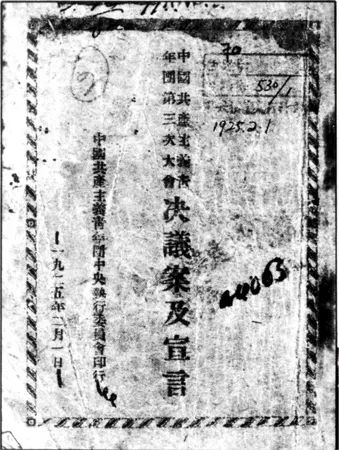 中國共產主義青
年團第三次大會
決議案及宣言
中國共產主義青年團中央執行委員會印行
一九二五年二月一日
70
530/1
1925.2.1